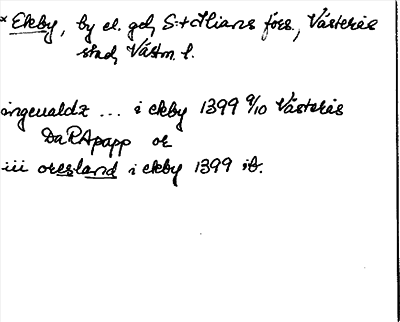 * Ekby, by el. gd, S:t Ilians förs., Västerås
stad, Västm. l.
ingeualdz ... i ekby 1399 9/10 Västerås
DaRApapp or
iii oresland i ekby 1399 ib.